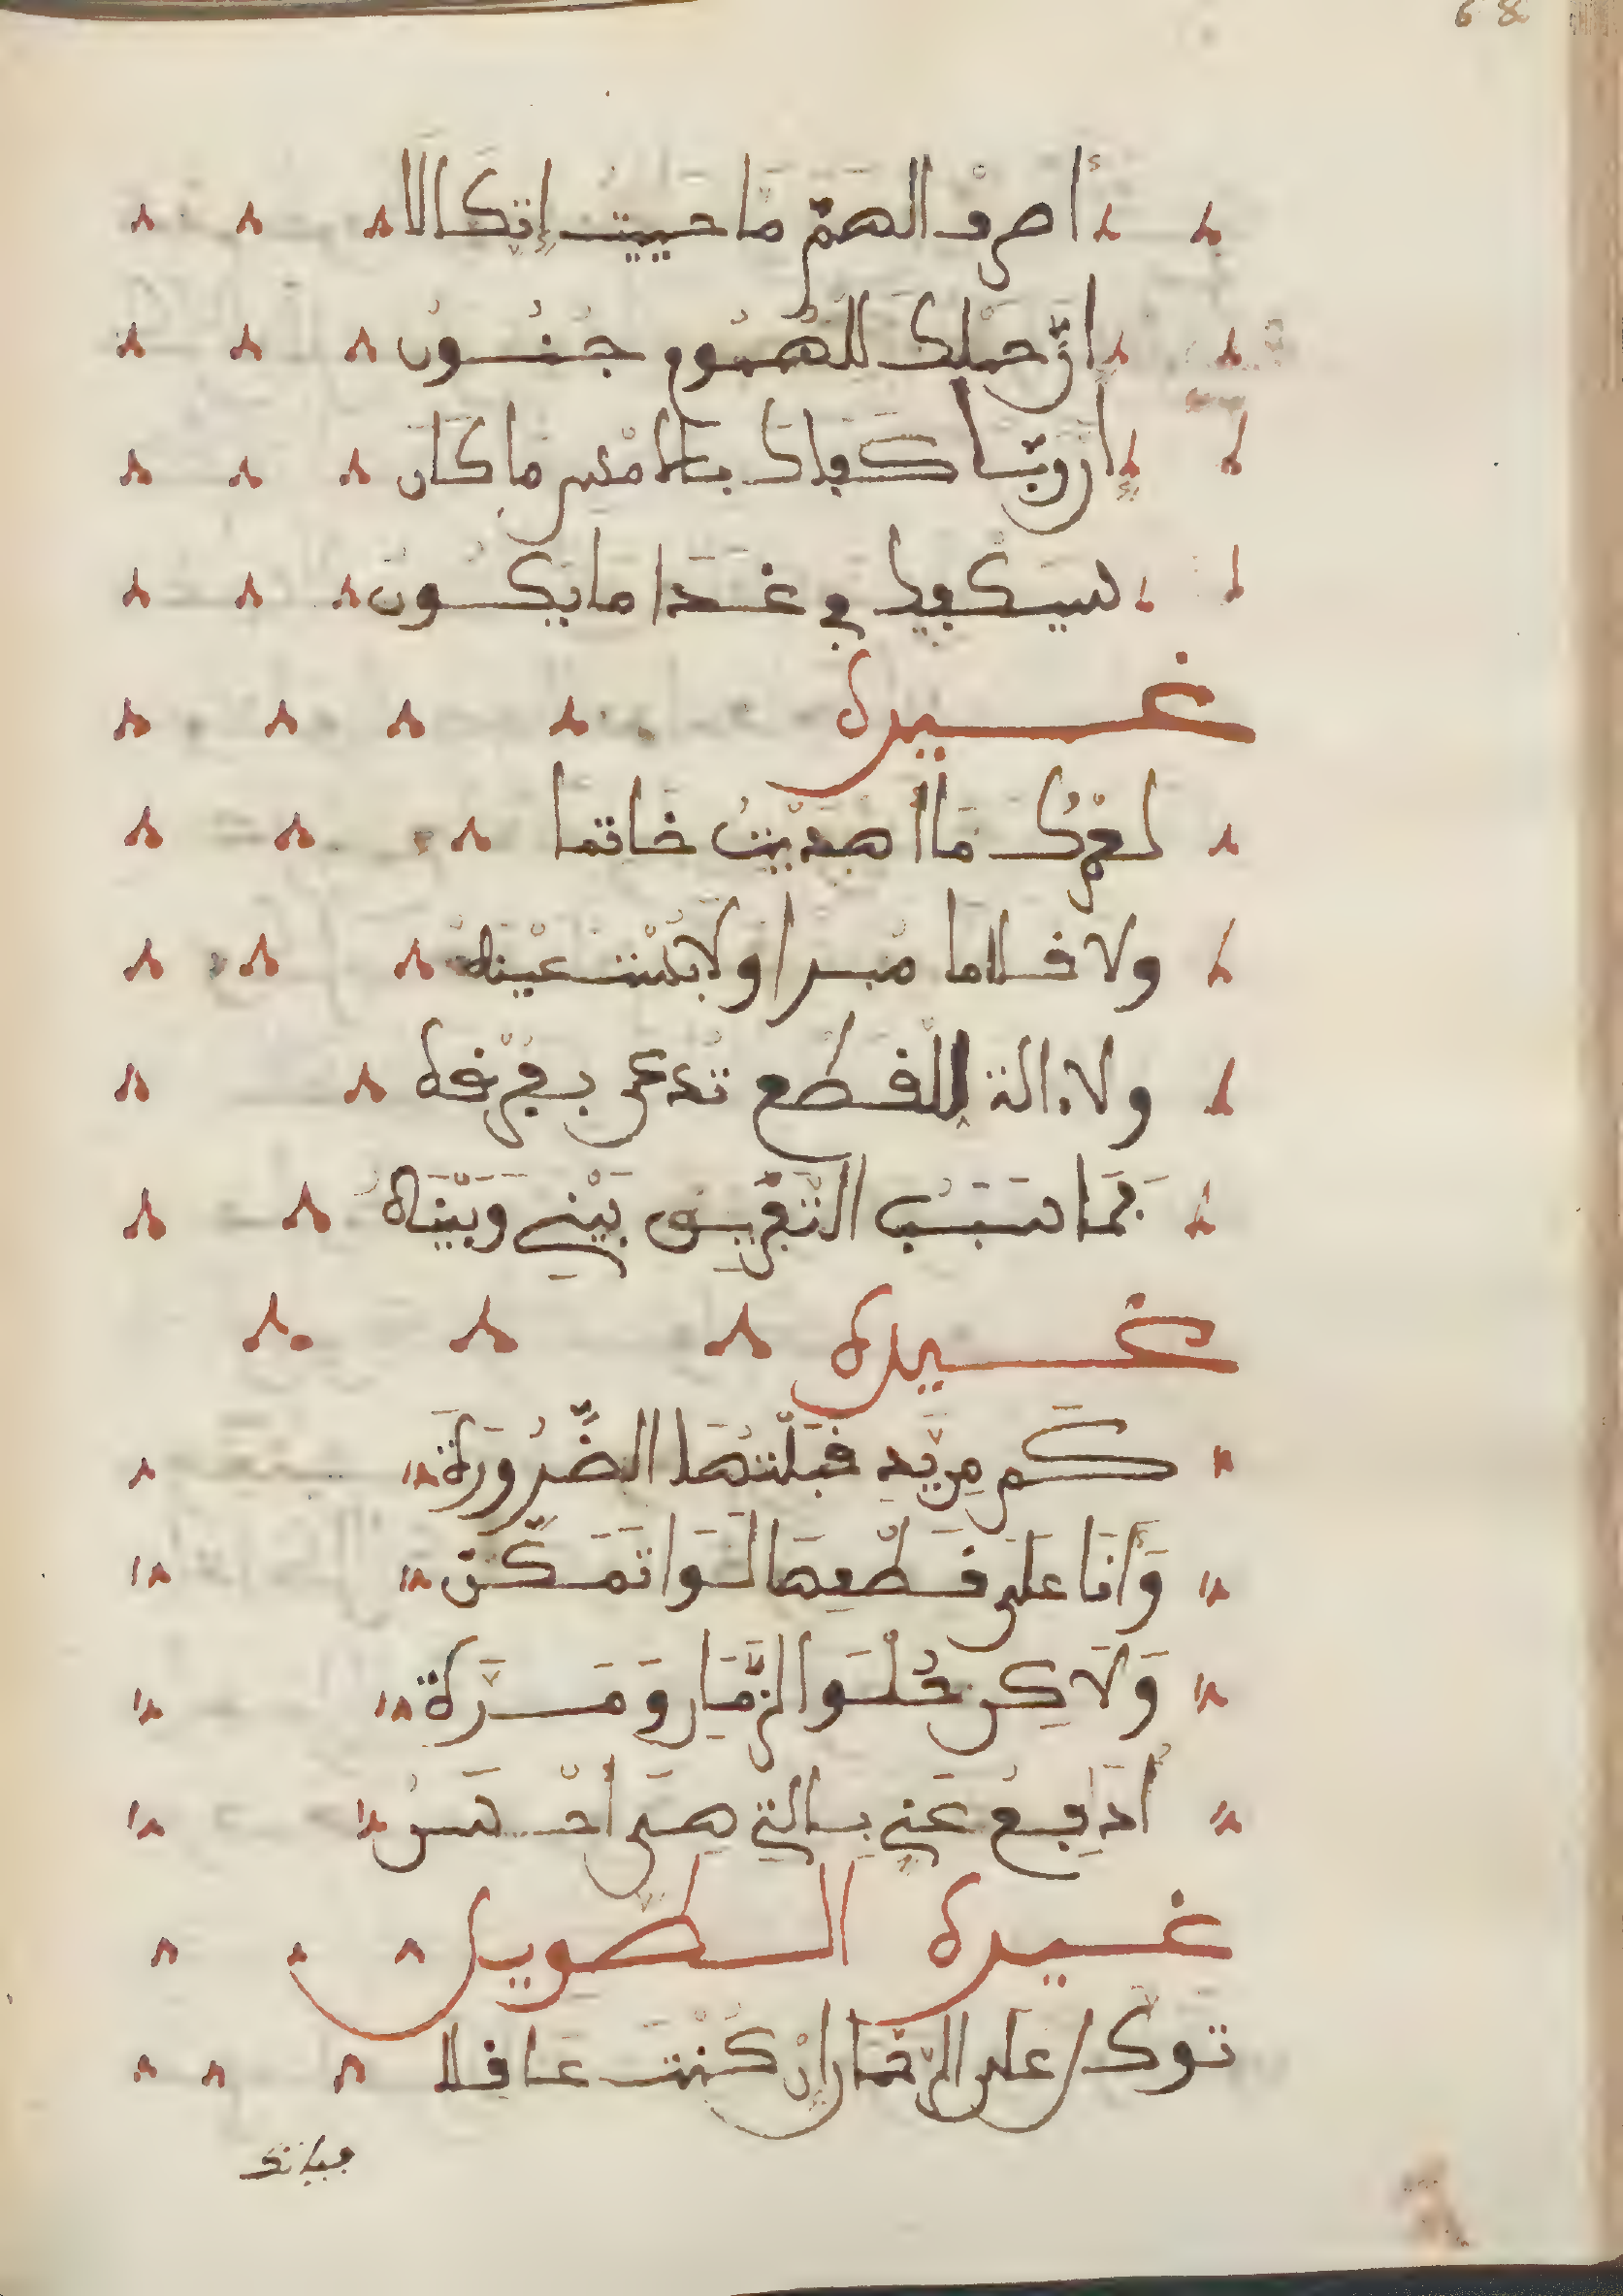 68
أصرف الهمّ ما حييت إتكالا
إنّ حملك للهُموم جُنُون
إن ربّا كفاك بالامْس ما كان
سيكفيك في غدا ما يكون
غيره
لعمْرُك ما أهديْتُ خاتما
ولا قلاما مبرا ولا بُنْت عيْنه
ولا الة للقطع تدعى بفرْقة
فما سَبَبُ التّفْريق بَيْني وَبَيْنَه
غيره
كم مِن يَدٍ قبّلتُها الضّرُورَة
وَأنَا عَلَى قَطْعِهَا لَوَاتمَكّنَ
وَلَاكِن حُلْوَ الزّمَانِ وَمَرَّة
أُدَافِعُ عَنِّي بِالّتِي هِيَ أحْسَنُ
غيره الطويل
توكل على الرّحمان إنْ كُنْت عَاقِلا
فبانك